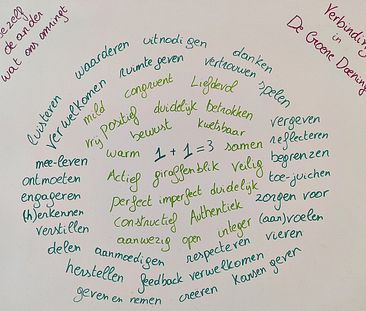 de ander
wat ons omringt
Verbinding
in
De Groene Doening
waarderen uitnodigen danken
verwelkomen ruimte geven vertrouwen spelen
luisteren mild congruent Liefdevol
vrij Positief duidelijk betrokken vergeven
bewust kwetsbaar reflecteren
warm 1 + 1 = 3 samen begrenzen
mee-leven Actief giraffenblik veilig toe-juichen
ontmoeten perfect imperfect duidelijk zorgen voor
engageren constructief Authentiek (aan)voelen
(h)erkennen aanwezig open integer vieren
verstillen
delen aanmoedigen respecteren
herstellen feedback verwelkomen kansen geven
geven en nemen creëren